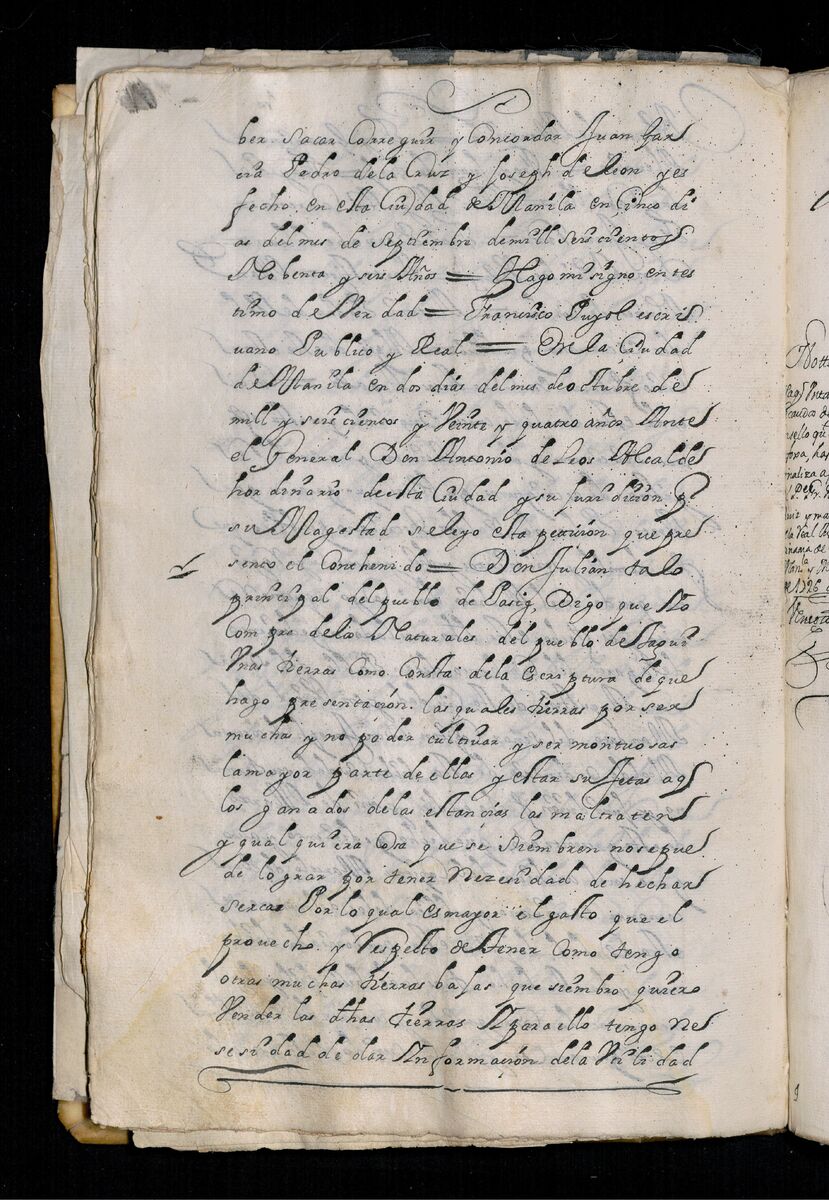 ber sacar Correguir y Concordar Juan Gar
cia Pedro dela Cruz y Joseph de leon y es
fecho en esta Ciudad de Manila en Cinco di
as del mes de Septiembre de mill seiscientos
Nobenta y seis Años = Hago mi signo en tes
timo de Verdad = Francisco Puyol escri
uano Publico y Real = En la Ciudad
de Manila en dos dias del mes de octubre de
mill y seiscientos y Veinte y quatro años Ante
el General Don Antonio de Leos Alcalde
hordinario de esta Ciudad y su Juridicion p
su Magestad se leyo esta peticion que pre
sento el Conthenido = Don Julian talo
principal del pueblo de Pasig, Digo que Yo
Compre de los Naturales del pueblo de
Vnas tierras Como Consta dela Escriptura de que
hago presentación. las quales tierras por ser
muchas y no poder cultiuar y ser montuosas
la mayor parte de ellas y estar sujetas aq
los ganados de las estancias las maltraten
y qual quiera Cosa que se siembren no se pue
de lograr por tener Nezesidad de hechar
sercas Por lo qual es mayor el gasto que el
prouecho. y Respecto de tener Como tengo
otras muchas tierras bajas que siembro quiero
Vender las dhas tierras Y para ello tengo Ne
sesidad de dar Ynformación dela Vtilidad
Nott
de 1726